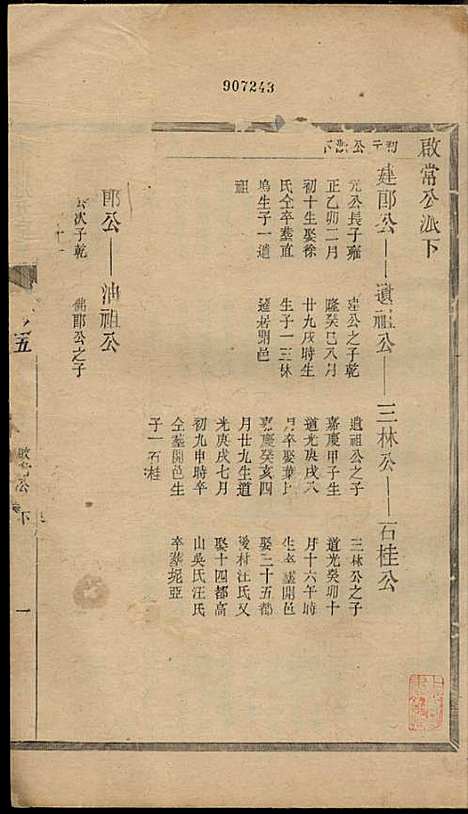 907243
啟常公派下
初子公派下
建郎公——遺祖公——三林公——石桂公
元公長子雍
正乙卯二月
初十生娶徐
氏仝卒葬直
塢生子一遺
祖
建公之子乾
隆癸巳八月
廿九戌時生
生子一三林
遷居開邑
遺祖公之子
嘉慶甲子生
道光庚戌八
月卒娶葉氏
嘉慶癸亥四
月廿九生道
光庚戌七月
初九申時卒
仝葬開邑生
子一石桂
三林公之子
道光癸卯十
月十六午時
生卒葬開邑
娶三十五都
後村汪氏又
娶十四都高
山吳氏汪氏
卒葬坭亞
郎公——油祖公
公次子乾
郎公之子
五
啟常公
下
一